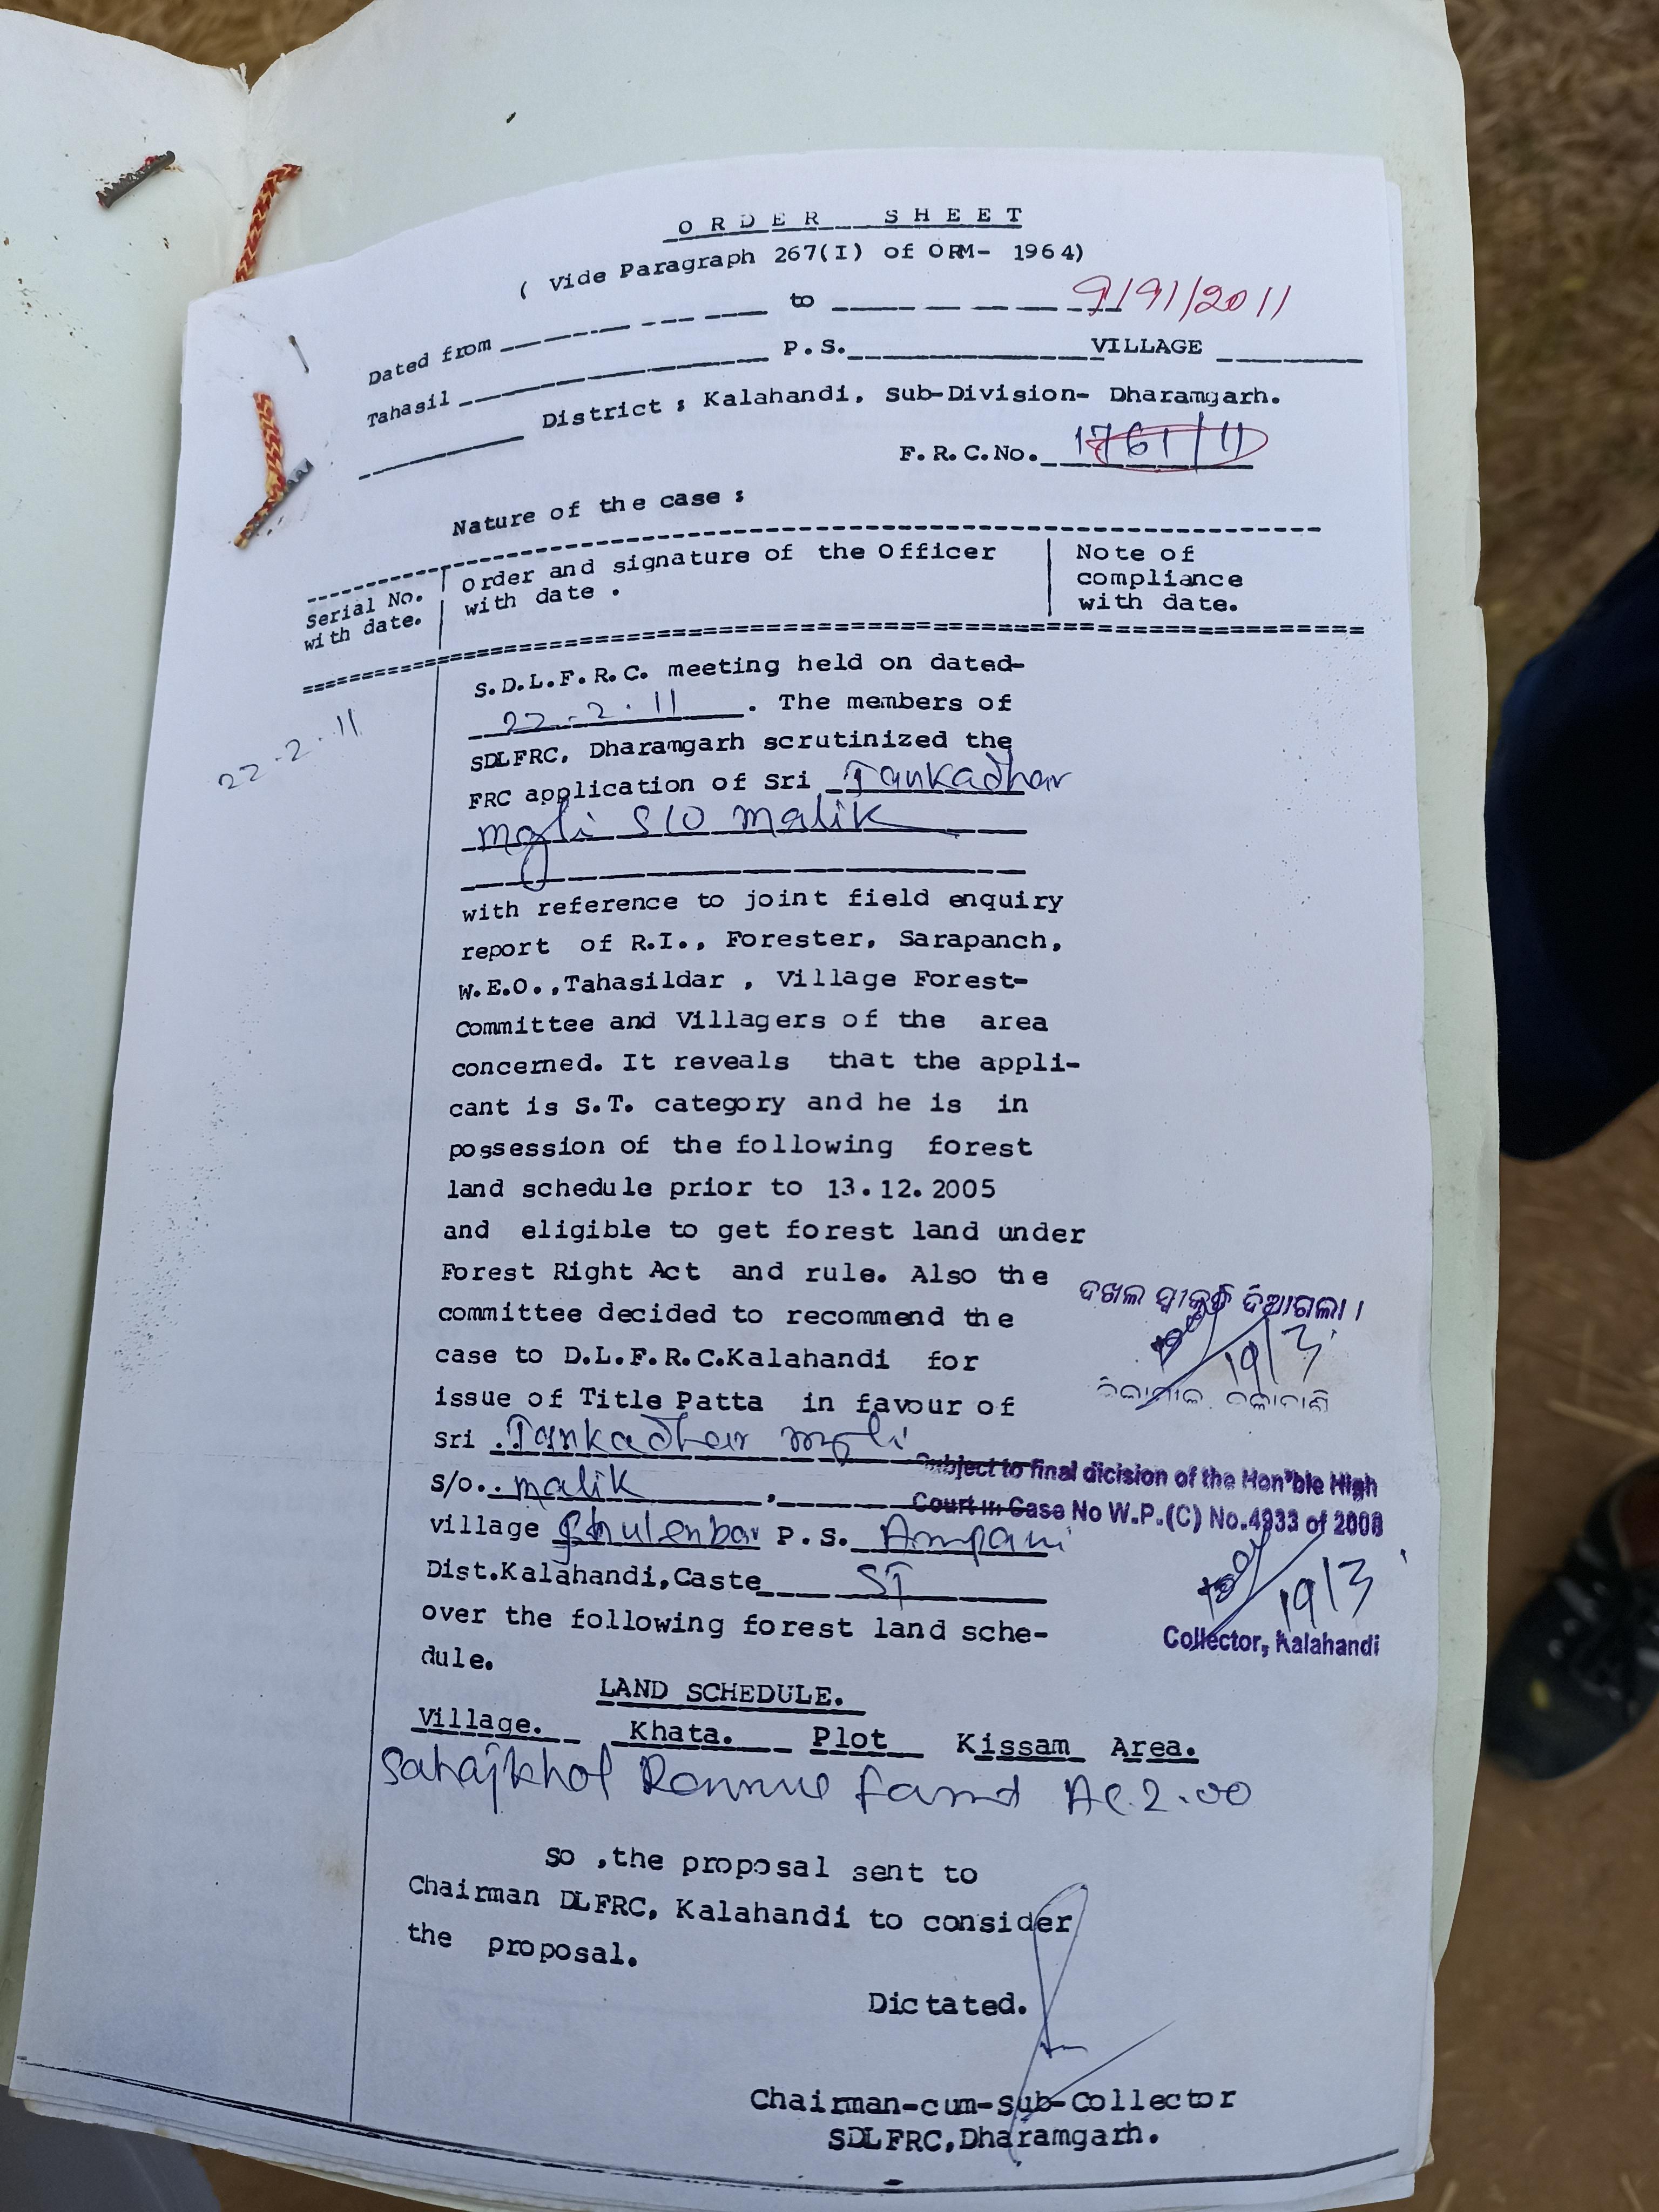 ORDER SHEET
( Vide Paragraph 267(I) of ORM- 1964)
Dated from to 9191/2011
Tahasil P.S. VILLAGE
District : Kalahandi, Sub-Division- Dharamgarh.
F.R.C.No. 1761/11
Nature of the case :
Serial No. with date.
Order and signature of the Officer with date .
Note of compliance with date.
22-2-11
S.D.L.F.R.C. meeting held on dated-
22-2.11. The members of
SDLFRC, Dharamgarh scrutinized the
FRC application of Sri Tankadhar
majhi S/O malik
with reference to joint field enquiry
report of R.I., Forester, Sarapanch,
W.E.O.,Tahasildar , Village Forest-
Committee and Villagers of the area
concerned. It reveals that the appli-
cant is S.T. category and he is in
possession of the following forest
land schedule prior to 13.12.2005
and eligible to get forest land under
Forest Right Act and rule. Also the
committee decided to recommend the
case to D.L.F.R.C.Kalahandi for
issue of Title Patta in favour of
sri Tankadhar majhi
s/o. malik ,
village P.S. Ampani
Dist.Kalahandi,Caste ST
over the following forest land sche-
dule.
ଦଖଲ ସ୍ୱୀକୃତି ଦିଆଗଲା ।
19/3
ଜିଲାପାଳ, କଳାହାଣ୍ଡି
Subject to final dicision of the Hon'ble High
Court in Case No W.P.(C) No.4933 of 2008
19/3
Collector, Kalahandi
LAND SCHEDULE.
Village. Khata. Plot Kissam Area.
Sahajkhol Ac.2.00
so ,the proposal sent to
Chairman DLFRC, Kalahandi to consider
the proposal.
Dictated.
Chairman-cum-Sub-Collector
SDLFRC,Dharamgarh.